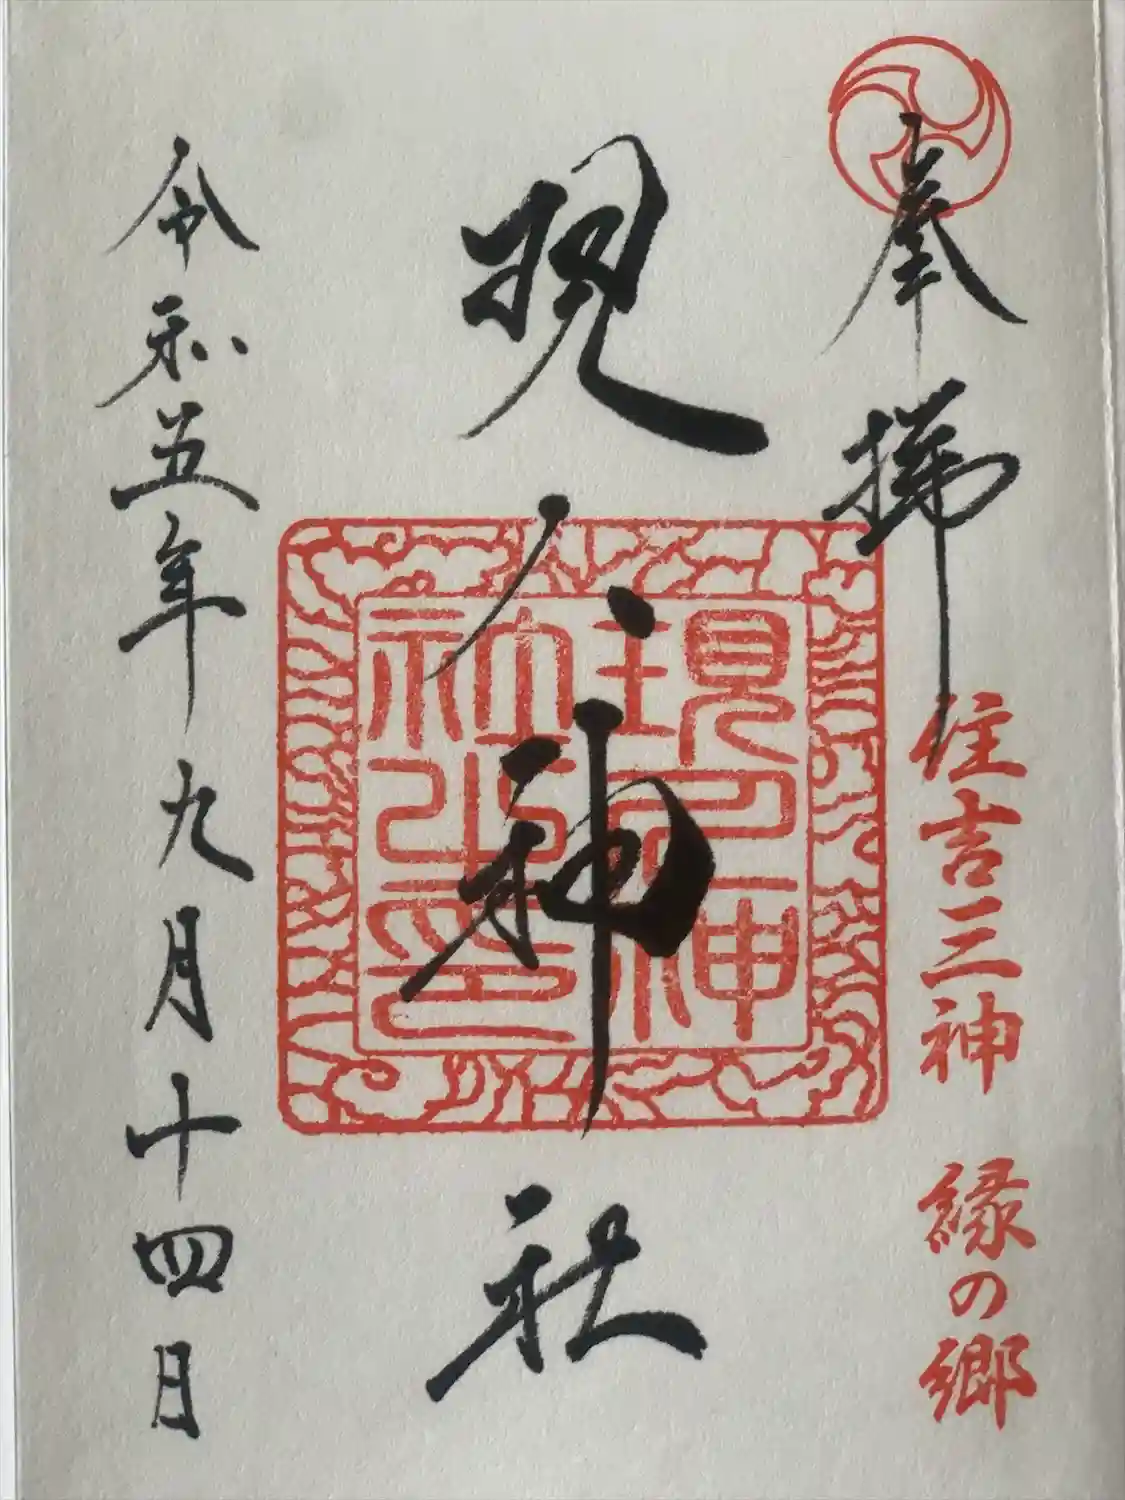 奉拝
住吉三神 縁の郷
現人神社
現人神
社之印
令和五年九月十四日